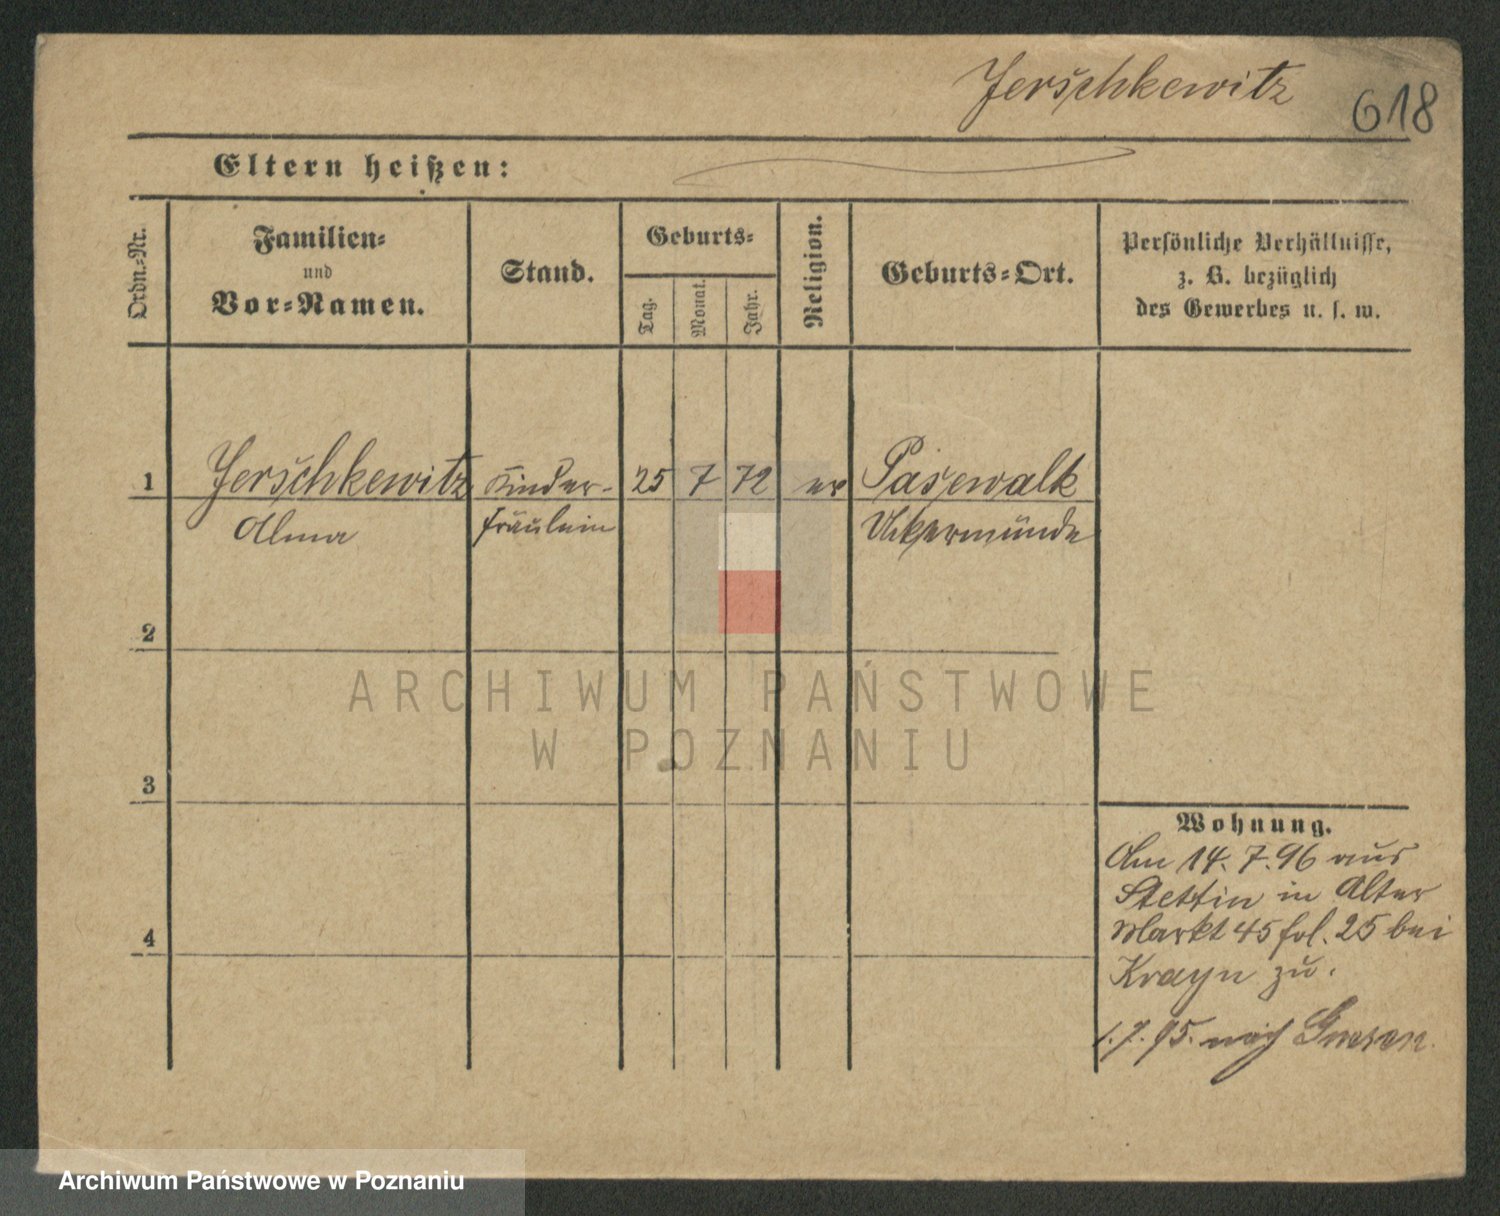 Jerschkewitz
618
Eltern heißen:
Ordn.-Nr.
Familien-
und
Vor-Namen.
Stand.
Geburts-
Tag.
Monat.
Jahr.
Religion.
Geburts-Ort.
Persönliche Verhältnisse,
z. B. bezüglich
des Gewerbes u. s. w.
1 Jerschkewitz Kinder- 25 7 72 ev Pasewalk
Alma fräulein Uckermünde
2
ARCHIWUM PAŃSTWOWE
W POZNANIU
3
4
Wohnung.
Am 14.7.96 aus
Stettin in Alter
Markt 45 fol. 25 bei
Krayn zu.
1.7.95. nach Gnesen
Archiwum Państwowe w Poznaniu